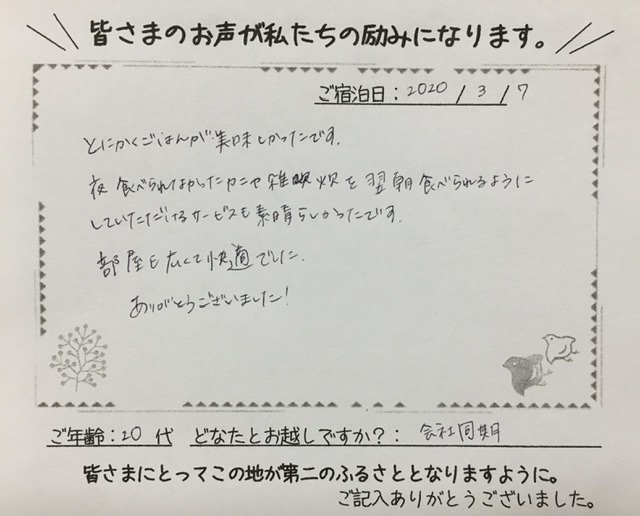 皆さまのお声が私たちの励みになります。
ご宿泊日：2020/3/7
とにかくごはんが美味しかったです。
夜食べられなかったカニや雑炊を翌朝食べられるように
していただけるサービスも素晴らしかったです。
部屋も広くて快適でした。
ありがとうございました！
ご年齢：20代 どなたとお越しですか？：会社同期
皆さまにとってこの地が第二のふるさととなりますように。
ご記入ありがとうございました。